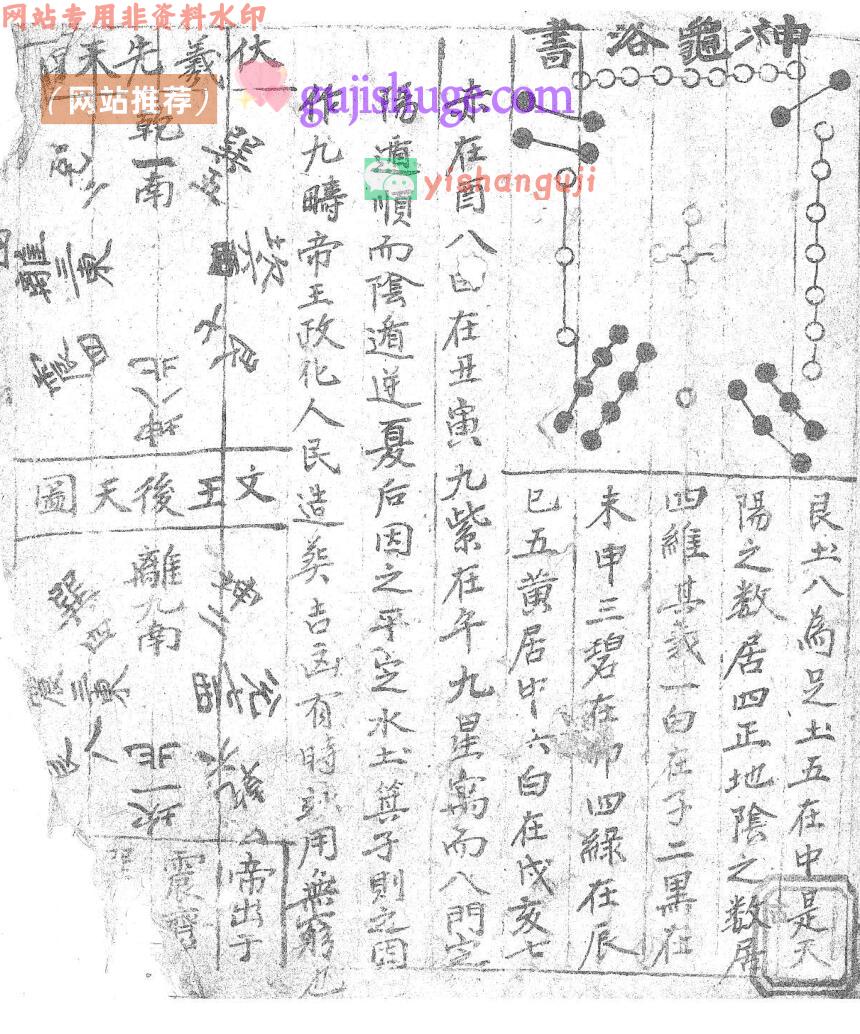 网站专用非资料水印
（网站推荐）
gujishuge.com
yishanguji
神龜洛書
艮土八為足土五在中是天
陽之数居四正地陰之数居
四維其義一白在子二黒在
未申三碧在卯四綠在辰
巳五黃居中六白在戌亥七
赤在酉八白在丑寅九紫在午九星寓而八門定
陽遁順而陰遁逆夏后因之平定水土箕子則之因
作九疇帝王政化人民造葬吉凶有時或用無窮也
伏羲先天圖
乾一南
兌二
離三東
震四
巽五
坎六西
艮七
坤八北
文王後天圖
離九南
坤二
兌七西
乾六
坎一北
艮八
震三東
巽四
帝出于
震齊
巽